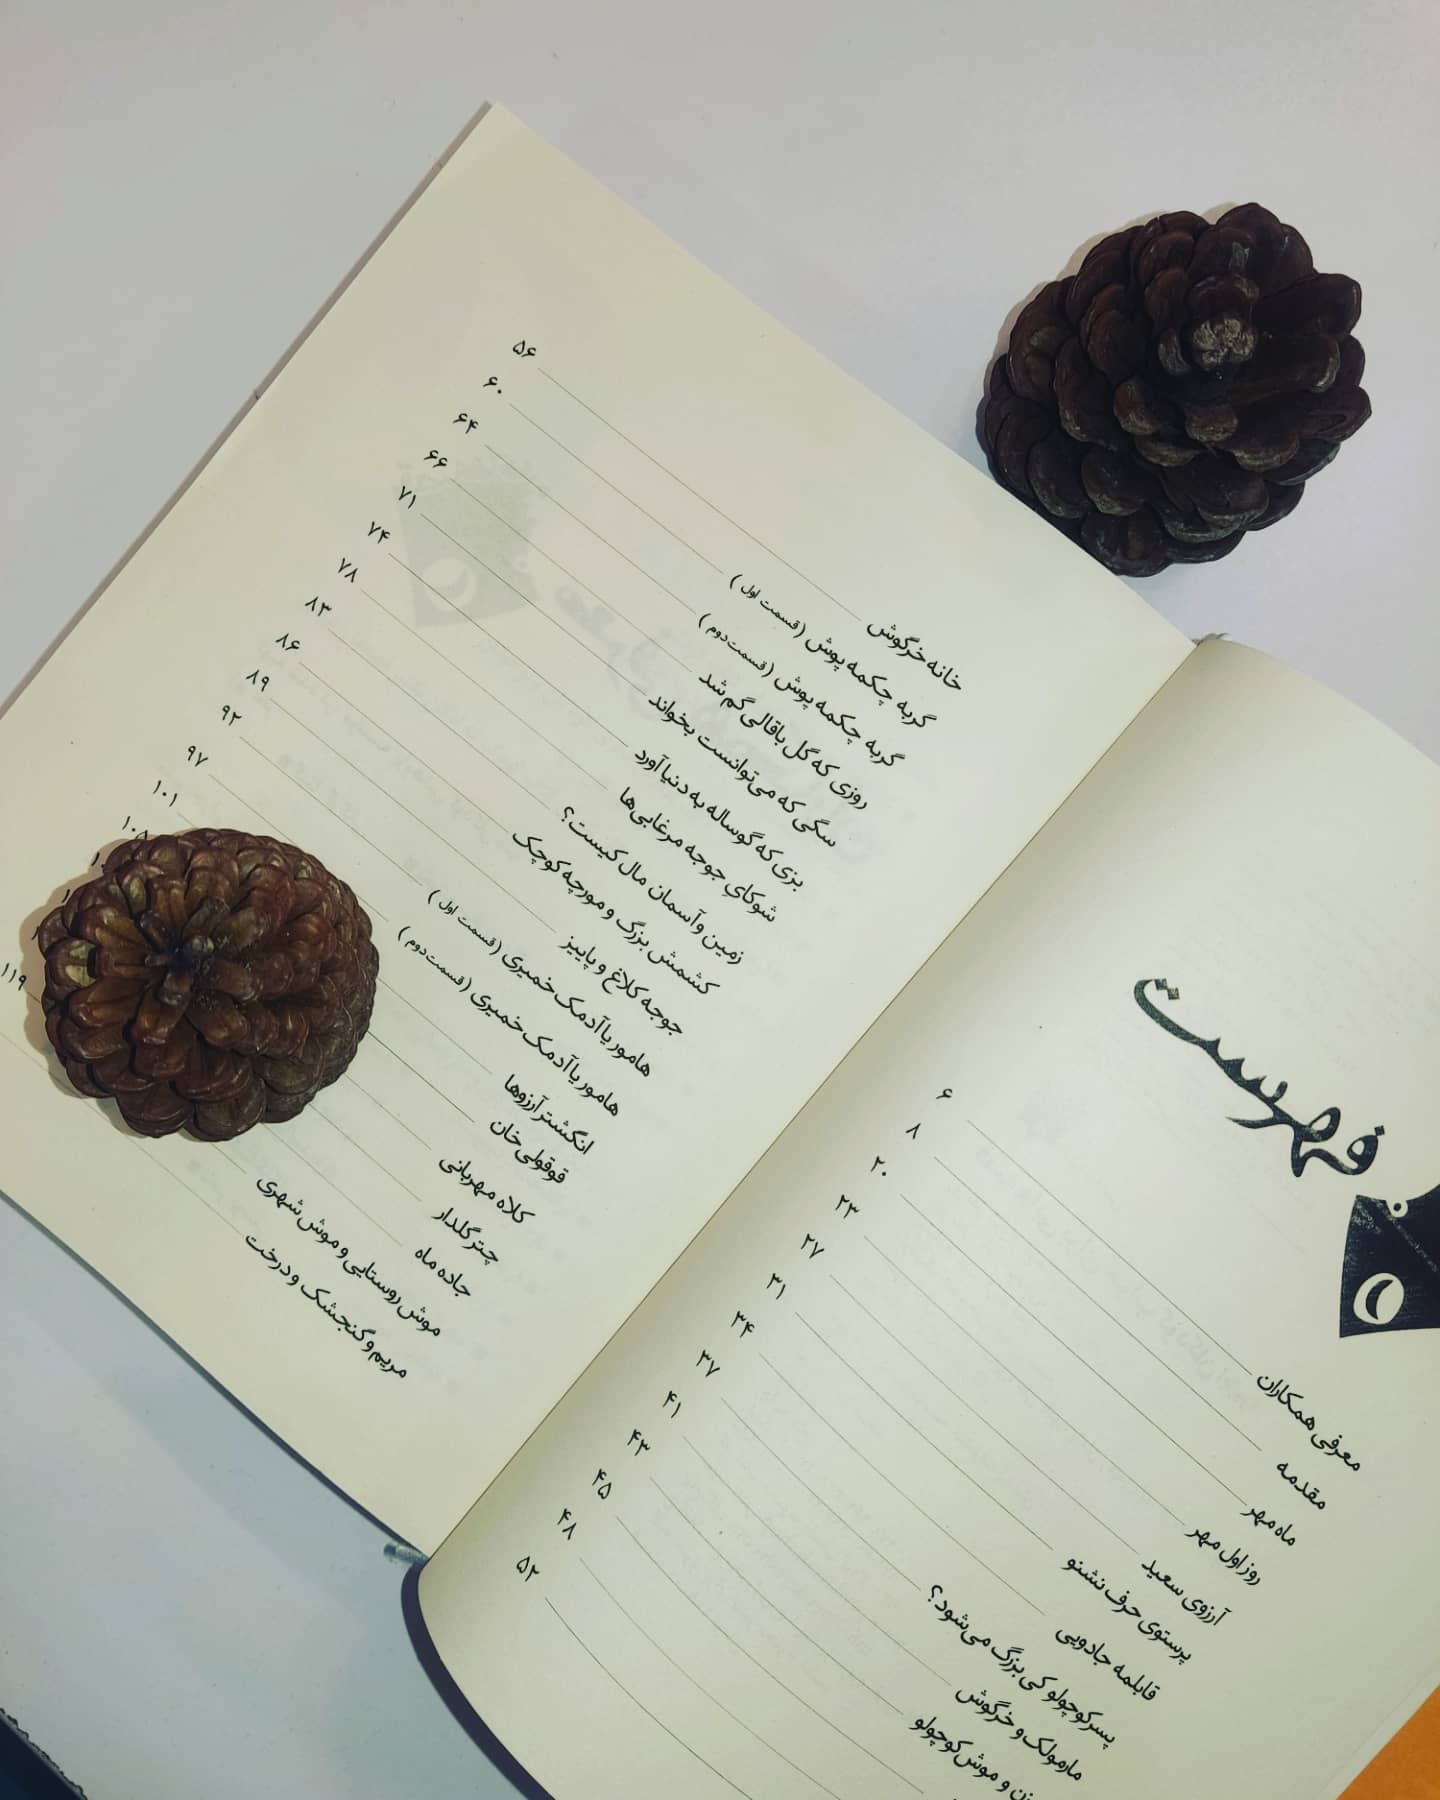 فهرست
معرفی همکاران ۶
مقدمه ۸
ماه مهر ۲۰
روز اول مهر ۲۳
آرزوی سعید ۲۷
پرستوی حرف نشنو ۳۱
قابلمه جادویی ۳۴
پسر کوچولو کی بزرگ می‌شود؟ ۳۷
مارمولک و خرگوش ۴۱
و موش کوچولو ۴۳
۴۵
۴۸
۵۲
خانه خرگوش ۵۶
گربه چکمه پوش (قسمت اول) ۶۰
گربه چکمه پوش (قسمت دوم) ۶۴
روزی که گل باقالی گم شد ۶۶
سگی که می‌توانست بخواند ۷۱
بزی که گوساله به دنیا آورد ۷۴
شوکای جوجه مرغابی‌ها ۷۸
زمین و آسمان مال کیست؟ ۸۳
کشمش بزرگ و مورچه کوچک ۸۶
جوجه کلاغ و پاییز ۸۹
هامور یا آدمک خمیری (قسمت اول) ۹۲
هامور یا آدمک خمیری (قسمت دوم) ۹۷
انگشتر آرزوها ۱۰۱
قوقولی خان ۱۰۵
کلاه مهربانی
چتر گلدار
جاده ماه
موش روستایی و موش شهری ۱۱۹
مریم و گنجشک و درخت